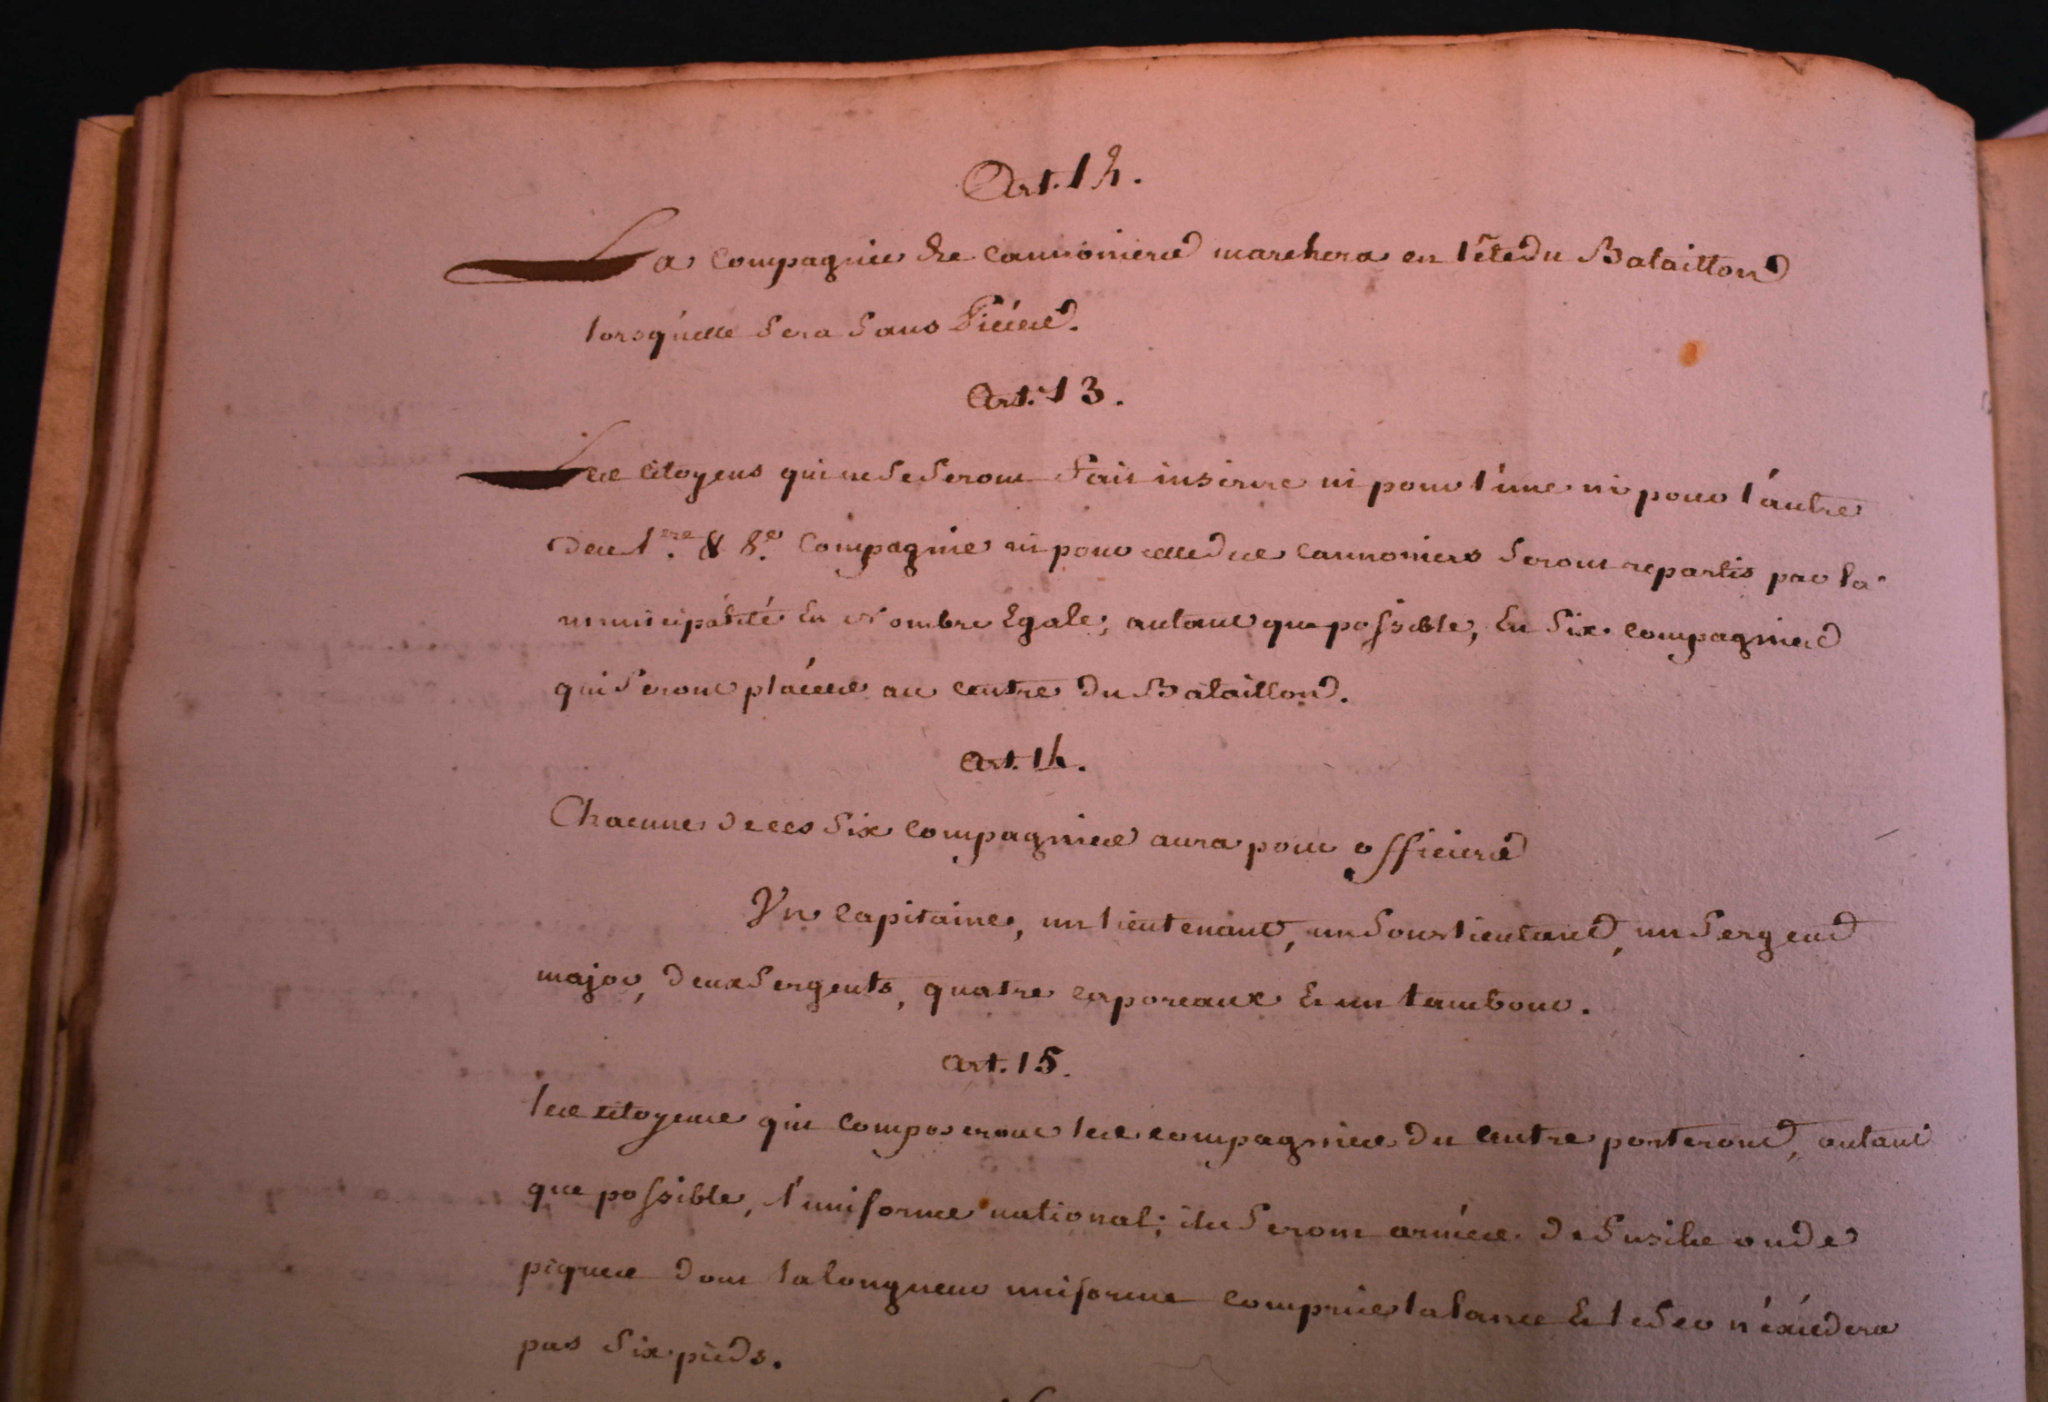 Art. 12.
La Compagnie de cannoniers marchera en tête du Bataillon
lorsqu'elle sera sans Piéces.
Art. 13.
Les Citoyens qui ne se seront fait inscrire ni pour l'une ni pour l'autre
des 1.re & 8.e Compagnie ni pour celle des cannoniers seront repartis par la
municipalité en Nombre Egale, autant que possible, En Six compagnies
qui seront placées au centre du Bataillon.
Art. 14.
Chacune de ces Six compagnies aura pour officiers
Un Capitaine, un lieutenant, un Sous lieutant, un Sergent
major, deux Sergents, quatre caporeaux & un tambour.
Art. 15.
les citoyens qui composeront les compagnies du centre porteront, autant
que possible, l'uniforme national; ils seront armées de fusils ou de
piques dont la longueur uniforme comprise la lance & le fer n'éxcédera
pas Six pieds.